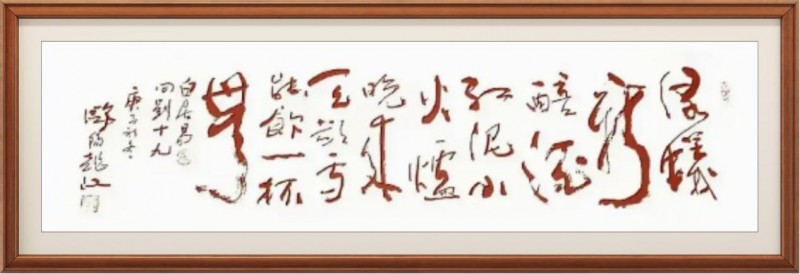 绿蟻
新
醅酒
红泥小
火爐
晚来
天欲雪
能飲一杯
無
白居易
问刘十九
庚子初冬